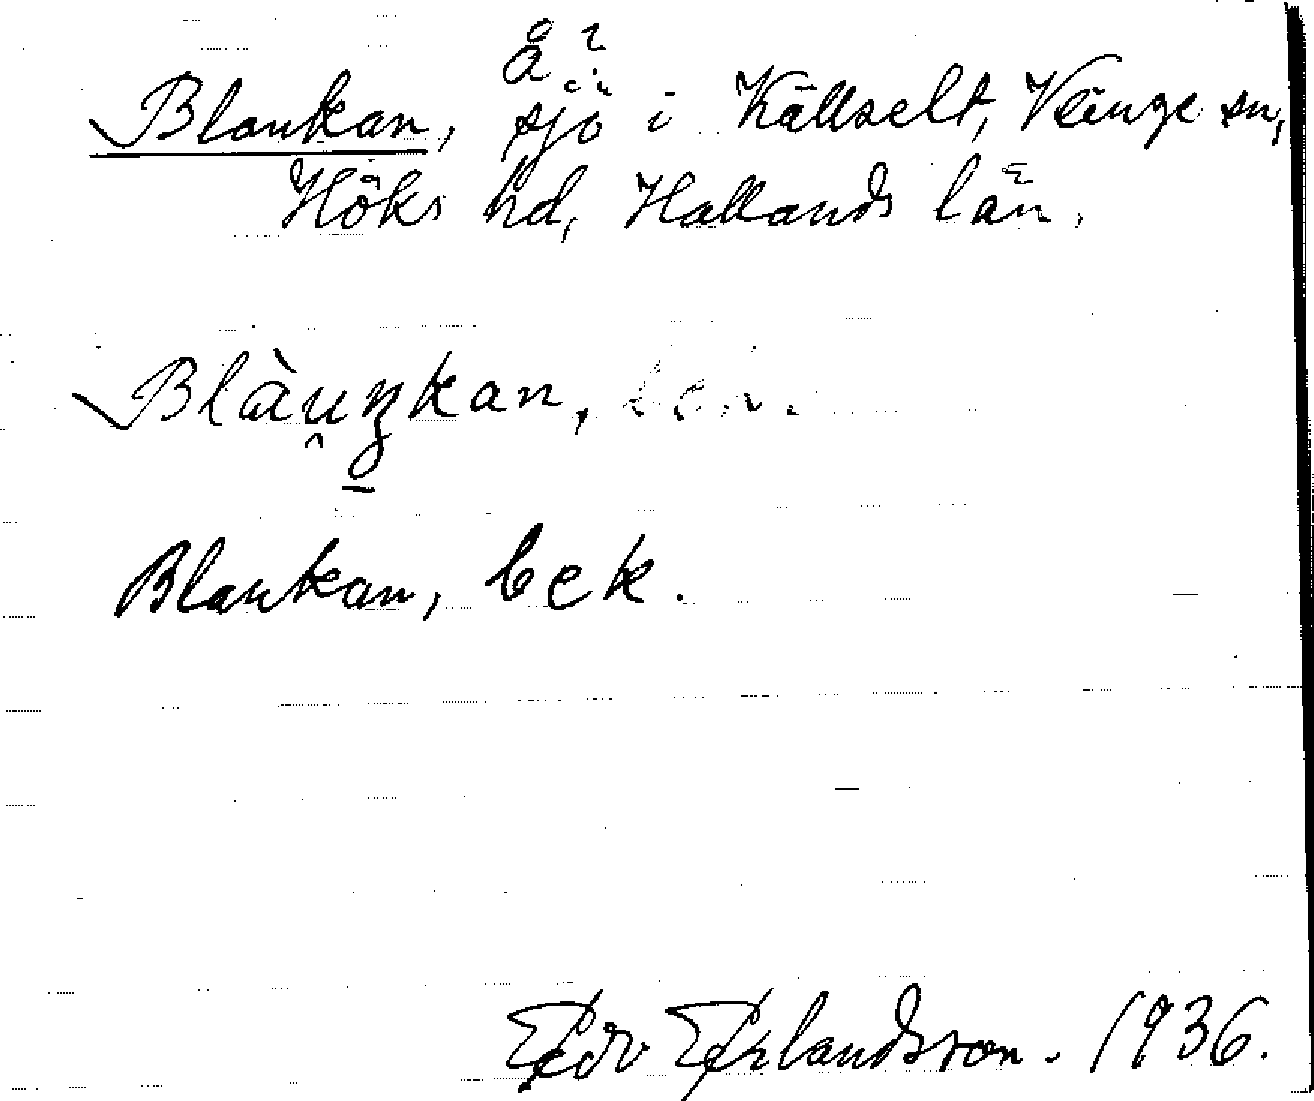 å ?
Blankan, sjö i Källselt, Veinge sn,
Höks hd, Hallands län.
Blàu̯ŋkan,
Blankan, bek.
Edv Erlandsson. 1936.